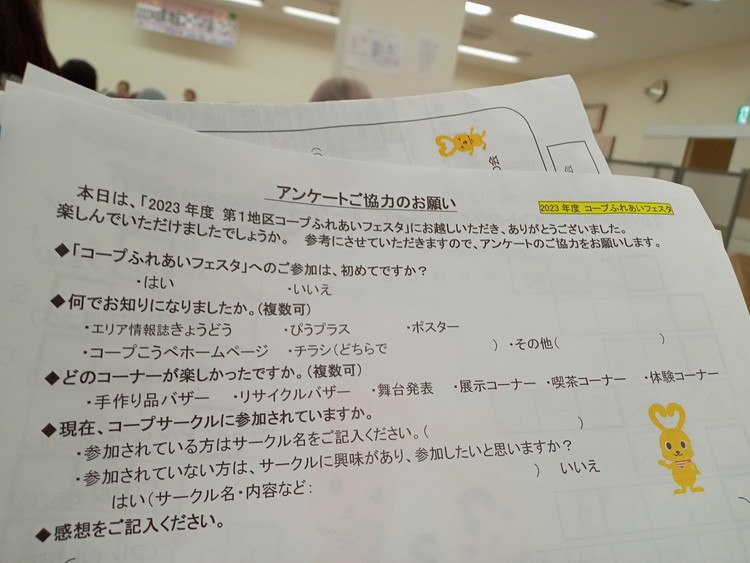 アンケートご協力のお願い
2023年度 コープふれあいフェスタ
本日は、「2023年度 第1地区コープふれあいフェスタ」にお越しいただき、ありがとうございました。
楽しんでいただけましたでしょうか。 参考にさせていただきますので、アンケートのご協力をお願いします。
◆「コープふれあいフェスタ」へのご参加は、初めてですか？
・はい ・いいえ
◆何でお知りになりましたか。(複数可)
・エリア情報誌きょうどう ・ぴうプラス ・ポスター
・コープこうべホームページ ・チラシ(どちらで ) ・その他( )
◆どのコーナーが楽しかったですか。(複数可)
・手作り品バザー ・リサイクルバザー ・舞台発表 ・展示コーナー ・喫茶コーナー ・体験コーナー
◆現在、コープサークルに参加されていますか。
・参加されている方はサークル名をご記入ください。( )
・参加されていない方は、サークルに興味があり、参加したいと思いますか？
はい(サークル名・内容など： ) いいえ
◆感想をご記入ください。